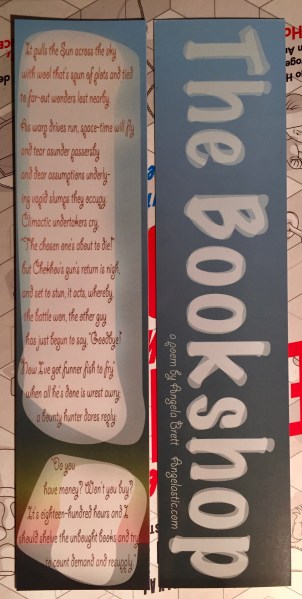 The Bookshop
a poem by Angela Brett Angelastic.com
It pulls the Sun across the sky
with wool that's spun of plots and tied
to far-out wonders lost nearby.
As warp drives run, space-time will fly
and tear asunder passersby
and dear assumptions underly-
ing vapid slumps they occupy.
Climactic undertakers cry,
"The chosen one's about to die!"
but Chekhov's gun's return is nigh,
and set to stun, it acts, whereby
the battle won, the other guy
has just begun to say, "Goodbye!
Now I've got funner fish to fry"
when all he's done is wrest awry;
a bounty hunter dares reply:
"Do you
have money? Won't you buy?
It's eighteen-hundred hours and I
should shelve the unbought books and try
to count demand and resupply."